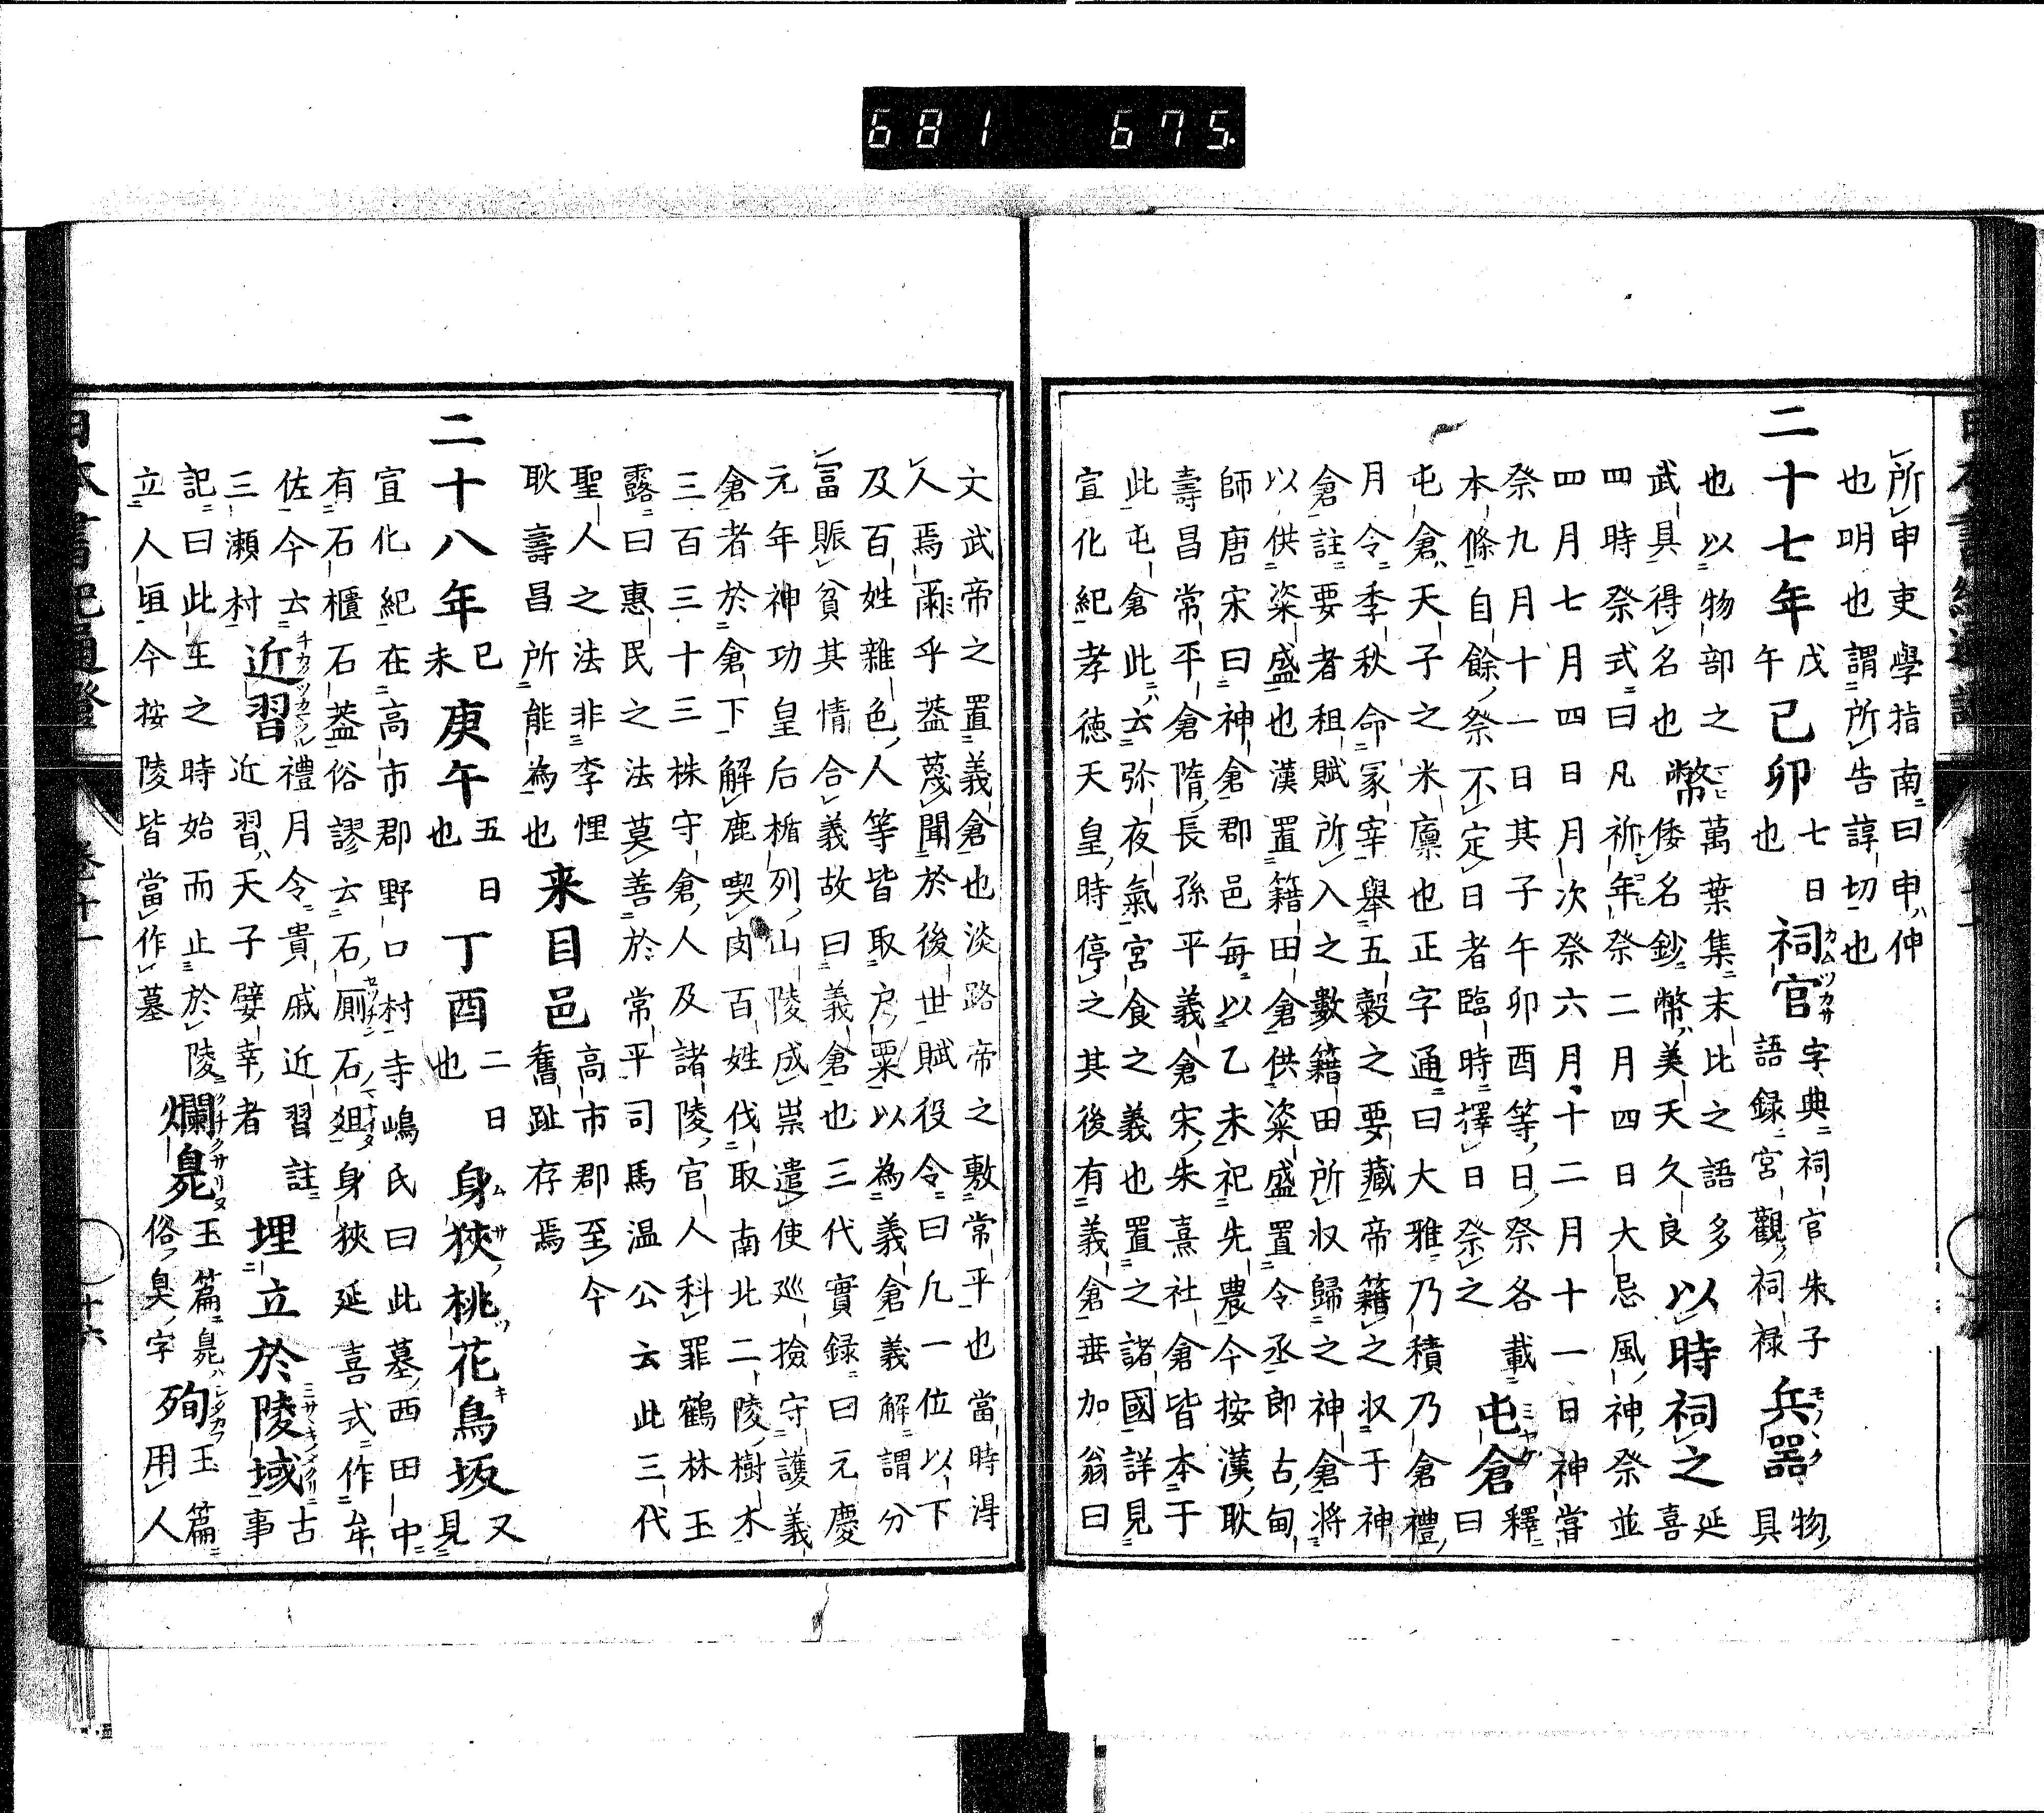 681 675.
所申吏學指南曰申ハ伸
也明也謂所告諄切也
二十七年戊午己卯七日也祠官カムツカサ字典祠官朱子語録宮觀祠禄兵器モノヽク物具
也以物部之一二萬葉集末比之語多
武具得名也幣倭名鈔幣ハ美天久良以時祠之延喜
四時祭式曰凡祈年祭二月四日大忌風神祭並
四月七月四日月次祭六月十二月十一日神嘗
祭九月十一日其子午卯酉等日祭各載
本條自餘祭不定日者臨時擇日祭之屯倉ミヤケ釋曰
屯倉ハ天子之米廩也正字通曰大雅乃積乃倉禮
月令季秋命冢宰舉五穀之要藏帝籍之収于神
倉註要者租賦所入之數籍田所収歸之神倉將
以供粢盛也漢置籍田倉供粢盛置令丞郎古甸
師唐宋曰神倉郡邑毎以乙未祀先農今按漢耿
壽昌常平倉隋長孫平義倉宋朱熹社倉皆本于
此屯倉此ニハ云弥夜氣宮食之義也置之諸國詳見
宣化紀孝徳天皇時停之其後有義倉亜加翁曰
文武帝之置義倉也淡路帝之敷常平也當時得
人焉爾乎葢蔑聞於後世賦役令曰凡一位以下
及百姓雜色人等皆取戸粟以為義倉義解謂分
冨賑貧其情合義故曰義倉也三代實録曰元慶
元年神功皇后楯列山陵成祟遣使巡撿守護義
倉者於倉下解鹿喫肉百姓伐取南北二陵樹木
三百三十三株守倉人及諸陵官人科罪鶴林玉
露曰惠民之法莫善於常平司馬温公云此三代
聖人之法非李悝
耿壽昌所能為也来目邑高市郡至今奮趾存焉
二十八年己未庚午五日也丁酉二日也身狹桃花鳥坂ムサツキ又見
宣化紀在高市郡野口村寺嶋氏曰此墓西田中
有石櫃石葢俗謬云石厠セツチン石爼マナイタ身狹延喜式作牟
佐今云禮月令貴戚近習註埋立於陵域ミサヽキノメクリニ古事
三瀬村近習チカクツカマツル近習ハ天子嬖幸者
記曰此王之時始而止於陵爛臰クチクサリヌ玉篇臰ハ俗臭字殉シタカフ玉篇用人
立人垣今按陵皆當作墓
日本書紀通證 巻十一 十六